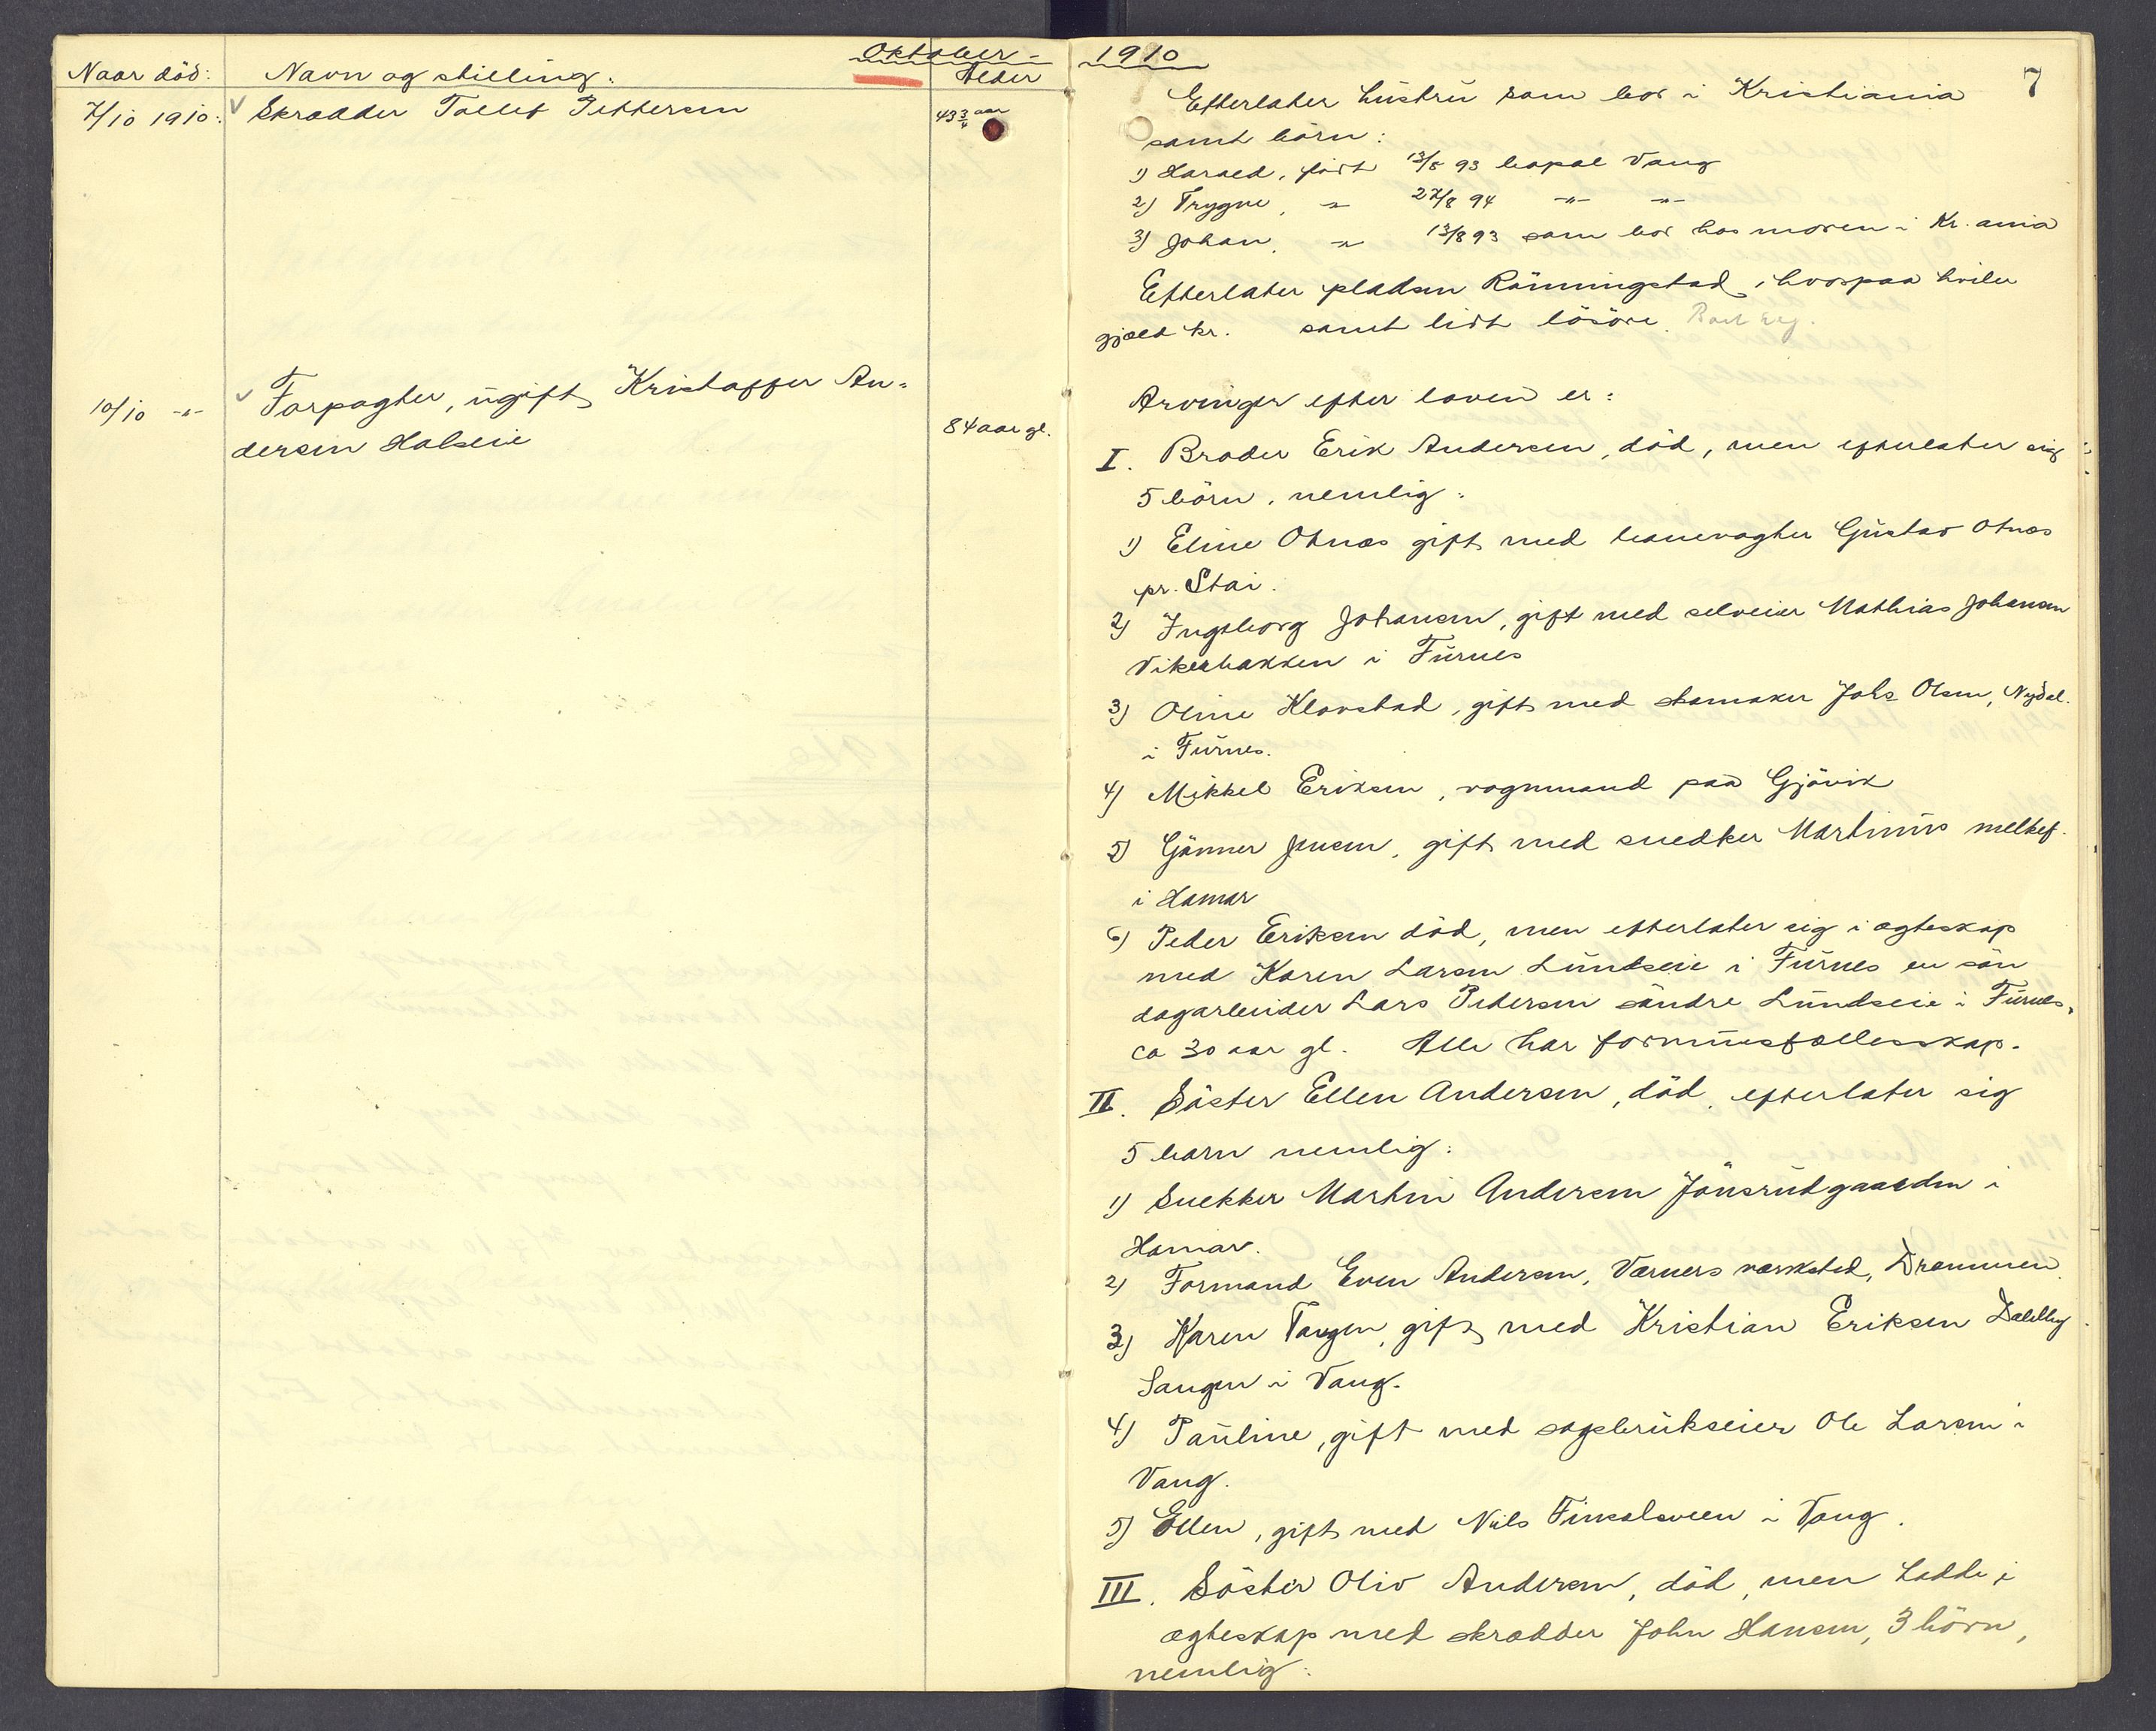 Oktober -
Naar död: Navn og stilling: Alder
7/10 1910: √ Skrædder Tollef Pettersen 43 3/4 aar
10/10 -"- √ Forpagter, ugift Kristoffer An-
dersen Halseie 84 aar gl.
1910
7
Efterlater hustru som bor i Kristiania
samt börn:
1) Harald, födt 13/5 93 bopæl Vang
2) Trygve, " 27/8 94 -"- -"-
3) Johan, " 13/8 93 som bor hos moren i Kr.ania
Efterlater pladsen Rönningstad, hvorpaa hviler
gjæld kr. samt lidt lösöre.
Arvinger efter loven er:
I. Broder Erik Andersen, död, men efterlater sig
5 börn, nemlig:
1) Eline Otnæs gift med banevogter Gustav Otnæs
pr. Stai.
2) Ingeborg Johansen, gift med selveier Mathias Johansen
Vikerbakken i Furnes
3) Oline Klovstad, gift med skomaker Johs Olsen, Nydal.
i Furnes.
4) Mikkel Eriksen, vognmand paa Gjövik
5) Gunner Jensen, gift med snedker Martinus melkef.
i Hamar
6) Peder Eriksen död, men efterlater sig i ægteskap
med Karen Larsen Lundseie i Furnes en sön
dagarbeider Lars Pedersen söndre Lundseie i Furnes,
ca 30 aar gl. Alle har formuesfællesskap.
II. Söster Ellen Andersen, död, efterlater sig
5 barn nemlig:
1) Snekker Martin Andersen Jönsrudgaarden i
Hamar.
2) Formand Even Andersen, Værners værksted, Drammen.
3) Karen Tangen, gift med Kristian Eriksen Dælibby
Sangen i Vang.
4) Pauline, gift med sagbrukseier Ole Larsen i
Vang.
5) Ellen, gift med Nils Finsalsveen i Vang.
III. Söster Oliv Andersen, död, men hadde i
ægteskap med skrædder John Hansen, 3 börn,
nemlig: